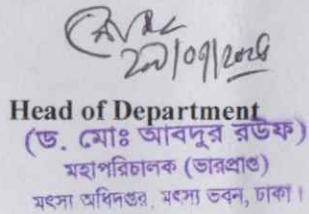 Head of Department
(ড. মোঃ আবদুর রউফ)
মহাপরিচালক (ভারপ্রাপ্ত)
মৎস্য অধিদপ্তর, মৎস্য ভবন, ঢাকা।